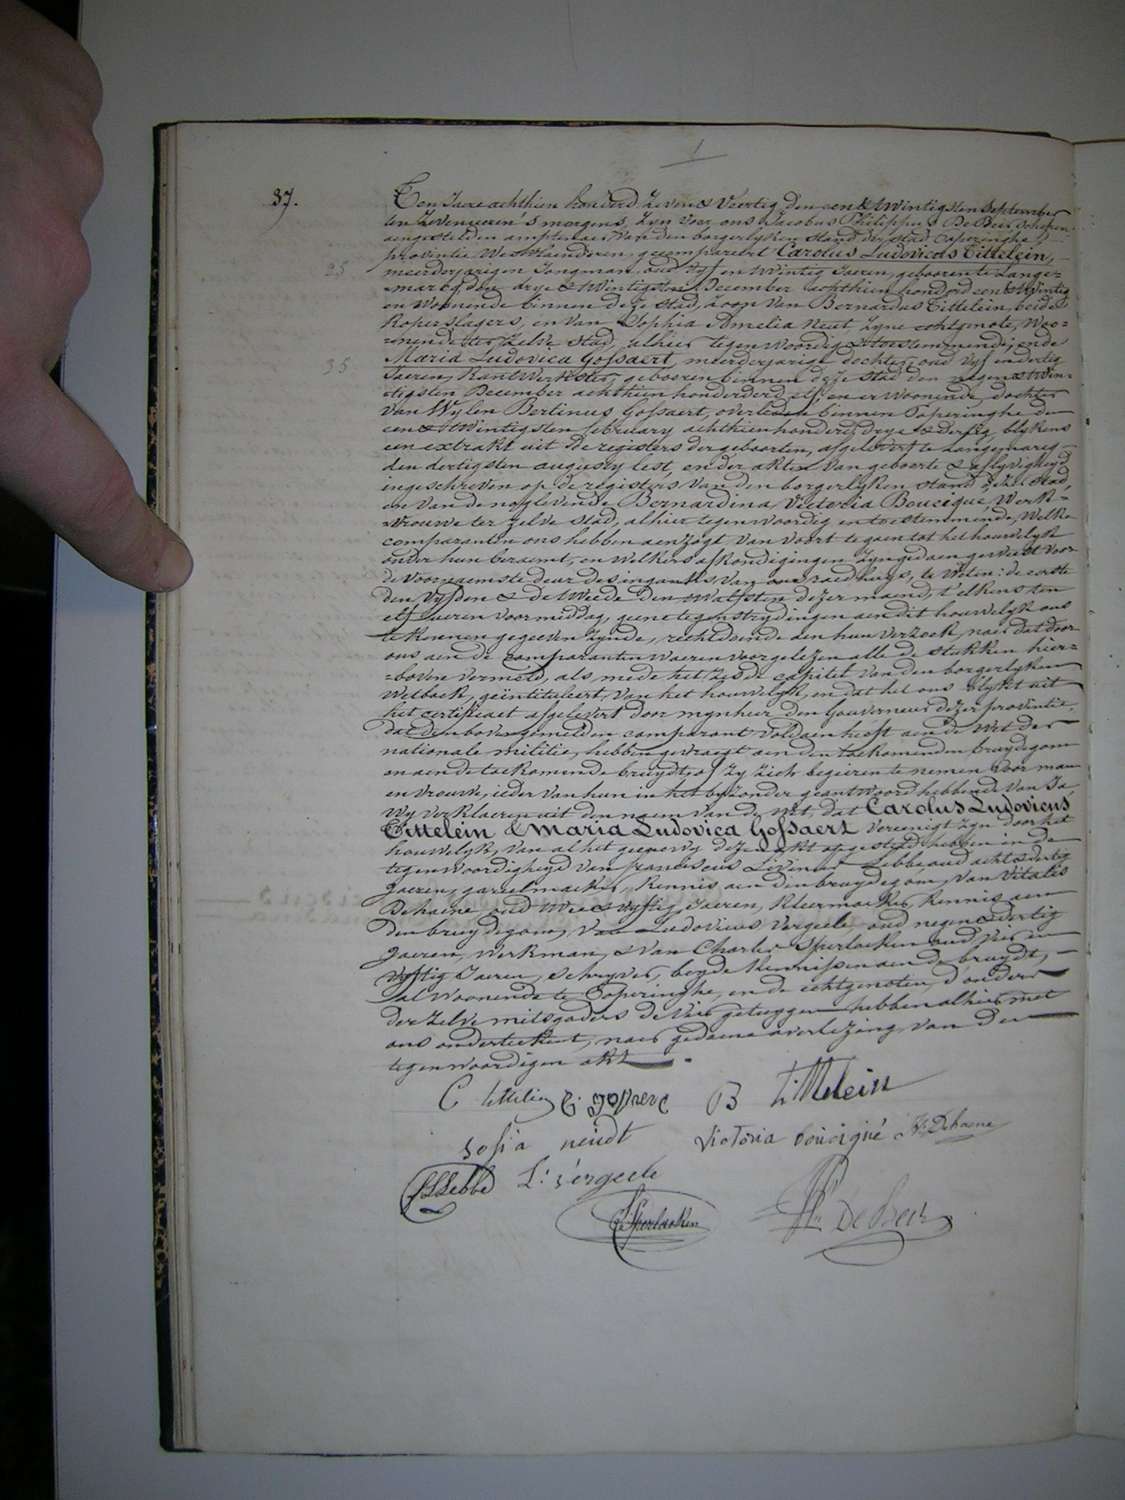 1
37.
Ten Jaere achthien honderd zeven & Veertig den een & twintigsten September
ten zeven ueren 's morgens, zyn voor ons Jacobus Philippus De Beir schepen
aengestelden amptenaer van den borgerlyken stand der stad Poperinghe
provintie Westvlaenderen, gecompareert Carolus Ludovicus Tittelein,
25
meerderjarigen Jongman, oud vyf en twintig Jaeren, gebooren te Lange-
marcq den drye & twintigsten December achthien honderd een & twintig
en Woonende binnen deze stad, zoon van Bernardus Tittelein, beide
Koperslagers, en van Sophia Amelia Neut zyne echtgenote, Woo-
nende ter zelve stad, alhier tegenwoordig & toestemmende; ende
35
Maria Ludovica Gossaert, meerderjarige dochter, oud vyf en dertig
Jaeren, KantWerkster, gebooren binnen deze stad den negen & twin-
tigsten December achthien honderd elf, en er woonende, dochter
van Wylen Bertinus Gossaert, overleden binnen Poperinghe den
een & twintigsten february achthien honderd drye & dertig, blykens
een extrakt uit de registers der geboorten, afgelevert te Langemarcq
den dertigsten augusty lest, en der akten van geboorte & aflyvigheyd
ingeschreven op de registers van den borgerlyken stand dezer stad,
en van de nog levende Bernardina Victoria Boucique, Werk-
vrouwe ter zelve stad, alhier tegenwoordig en toestemmende, Welke
comparanten ons hebben aenzogt van voort te gaen tot het houwelyk
onder hun beraemt, en Welkers afkondigingen zyn gedaen geweest voor
de voornaemste deur des ingangs van ons raedhuys, te weten: de eerste
den vyfden & de tweede den twaelfsten dezer maend, t'elkens ten
elf ueren voormiddag, geene tegenstrydingen aen dit houwelyk ons
te kennen gegeeven zynde, rechtdoende aen hun verzoek, naer dat door
ons aen de comparanten waeren voorgelezen alle de stukken hier-
boven vermeld, als mede het zesde capitel van den borgerlyken
Wetboek, geïntituleert, van het houwelyk, en dat het ons blykt uit
het certificaet afgelevert door mynheer den Gouverneur dezer provintie,
dat den bovengemelden comparant voldaen heeft aen de Wet der
nationale militie, hebben gevraegt aen den toekomenden bruydegom
en aen de toekomende bruydt, of zy zich begeeren te nemen voor man
en vrouwe, ieder van hun in het byzonder geantwoord hebbende van Ja,
Wy verklaeren uit den naem van de Wet, dat Carolus Ludovicus
Tittelein & Maria Ludovica Gossaert vereenigt zyn door het
houwelyk, van al het geene wy dezen akt opgesteld hebben in de
tegenwoordigheyd van franciscus Livinus Lebbe oud acht & dertig
Jaeren, gareelmaeker, Kennis aen den bruydegom, van Vitalis
Dehaene oud twee & vyftig Jaeren, Kleermaeker, Kennis aen
den bruydegom, van Ludovicus Vergeele, oud negen & dertig
Jaeren, Werkman, & van Charles Sperlaeken oud vier en
vyftig Jaeren, schryver, beyde Kennissen aen de bruydt,
al woonende te Poperinghe, en de echtgenoten, d'ouders
der zelve mitsgaders de vier getuygen hebben alhier met
ons onderteekent, naer gedaene overlezing van den
tegenwoordigen akt.
C tittelein L: gossaert B tittelein
sofia neudt Victoria bouciqué V. Dehaene
f L Lebbe L: Vergeele
C Sperlaeken Ph DeBeir